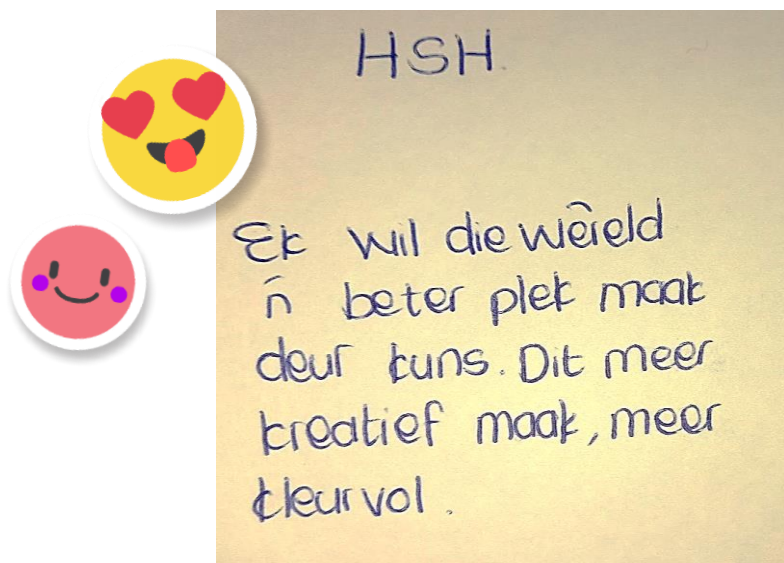 HSH.
Ek wil die wêreld
'n beter plek maak
deur kuns. Dit meer
kreatief maak, meer
kleurvol.